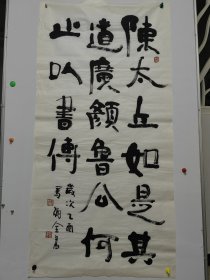 陳太丘如是其
道廣顏魯公何
止以書傳
歲次乙酉